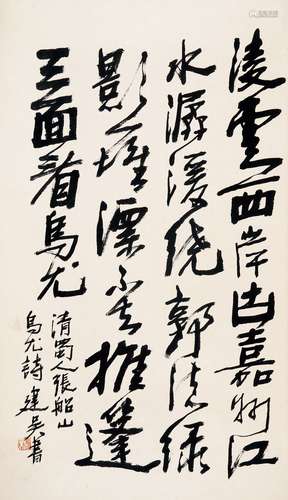 凌雲西岸古嘉州江
水潺湲繞郭流綠
影一堆漂不去推篷
三面看烏尤
清蜀人張船山
烏尤詩 建吳書